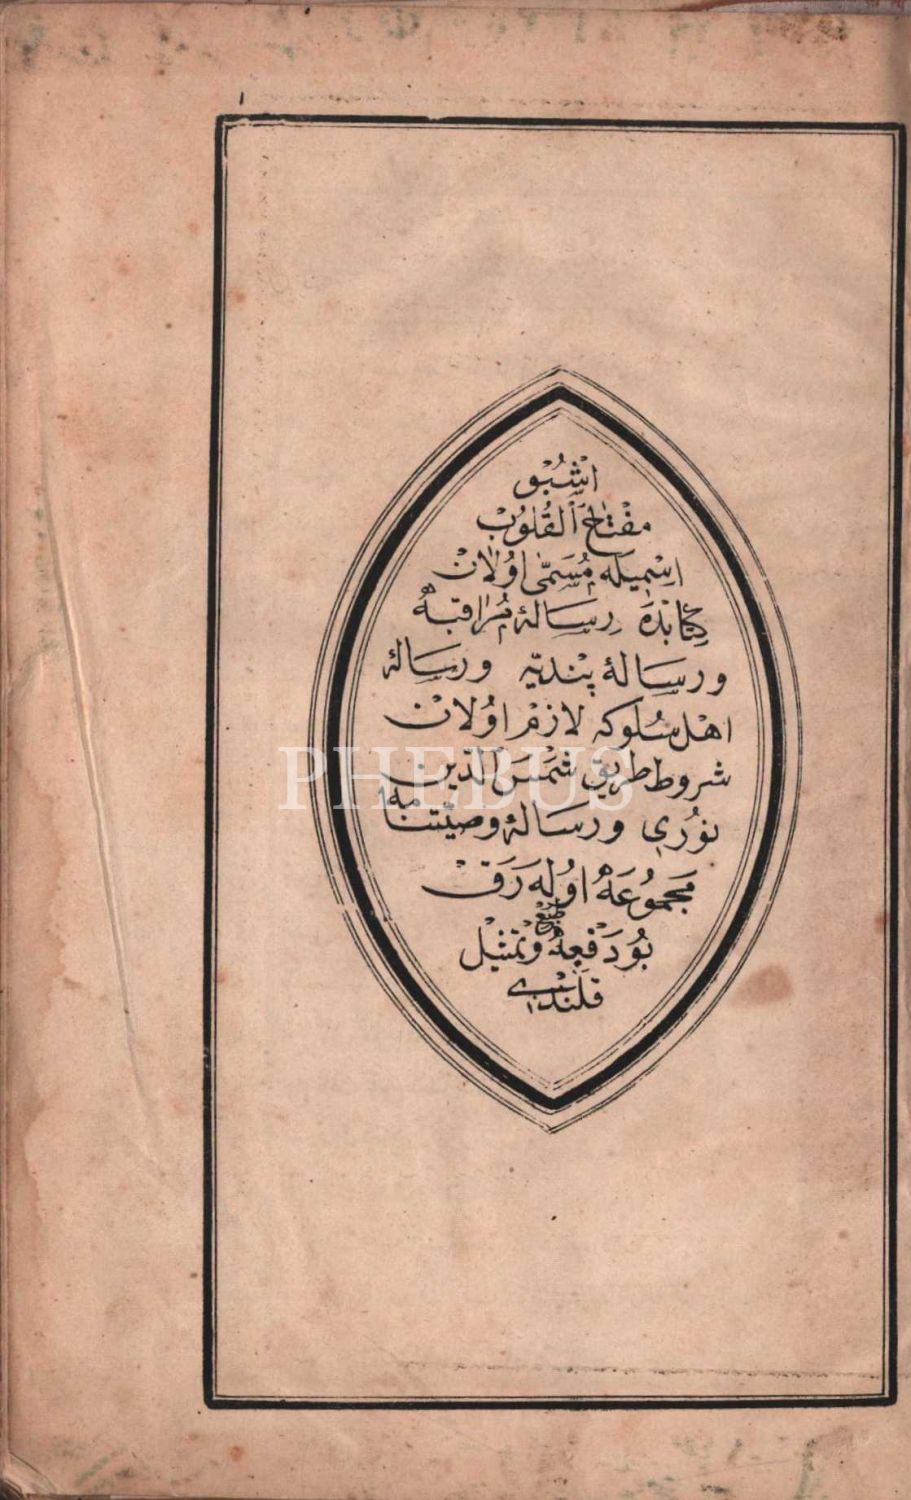 ١
اشبو
مفتاح القلوب
اسميله مسمى اولان
كتابده رسالۀ مراقبه
ورسالۀ پنديه ورسالۀ
اهل سلوكه لازم اولان
شروط طريق شمس الدين
نورى ورسالۀ وصيتنامه
مجموعۀ اوله رق
بو دفعه طبع وتمثيل
قلندى
PHEBUS